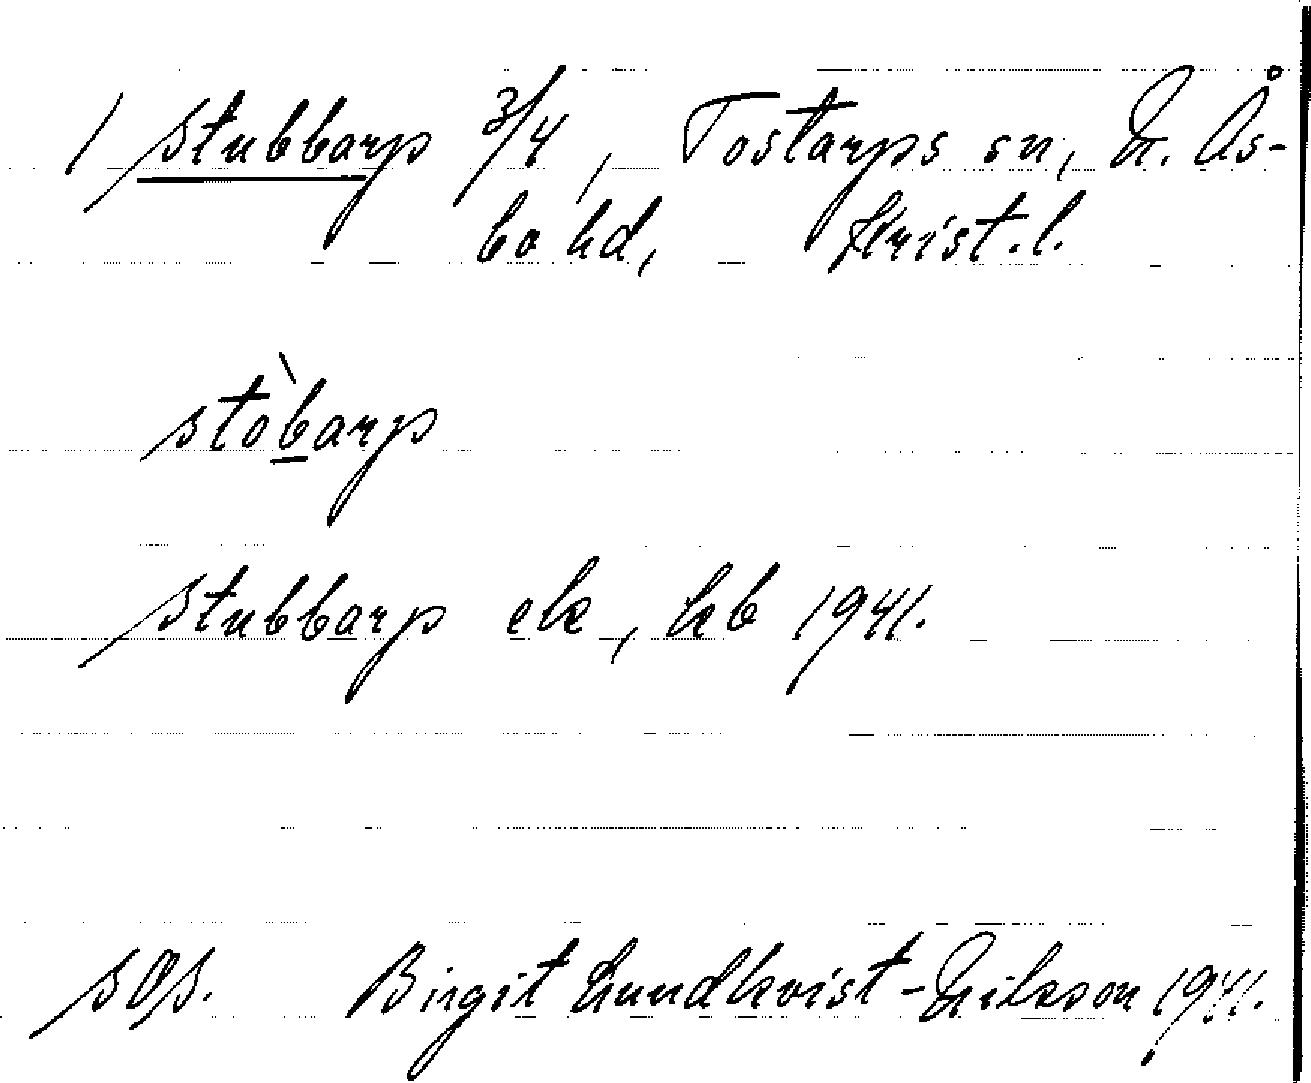 1 Stubbarp 3/4, Tostarps sn, N. Ås-
bo hd, Krist. l.
stòb̲arp
Stubbarp ek, kb 1941.
SOS. Birgit Lundkvist-Nilsson 1941.